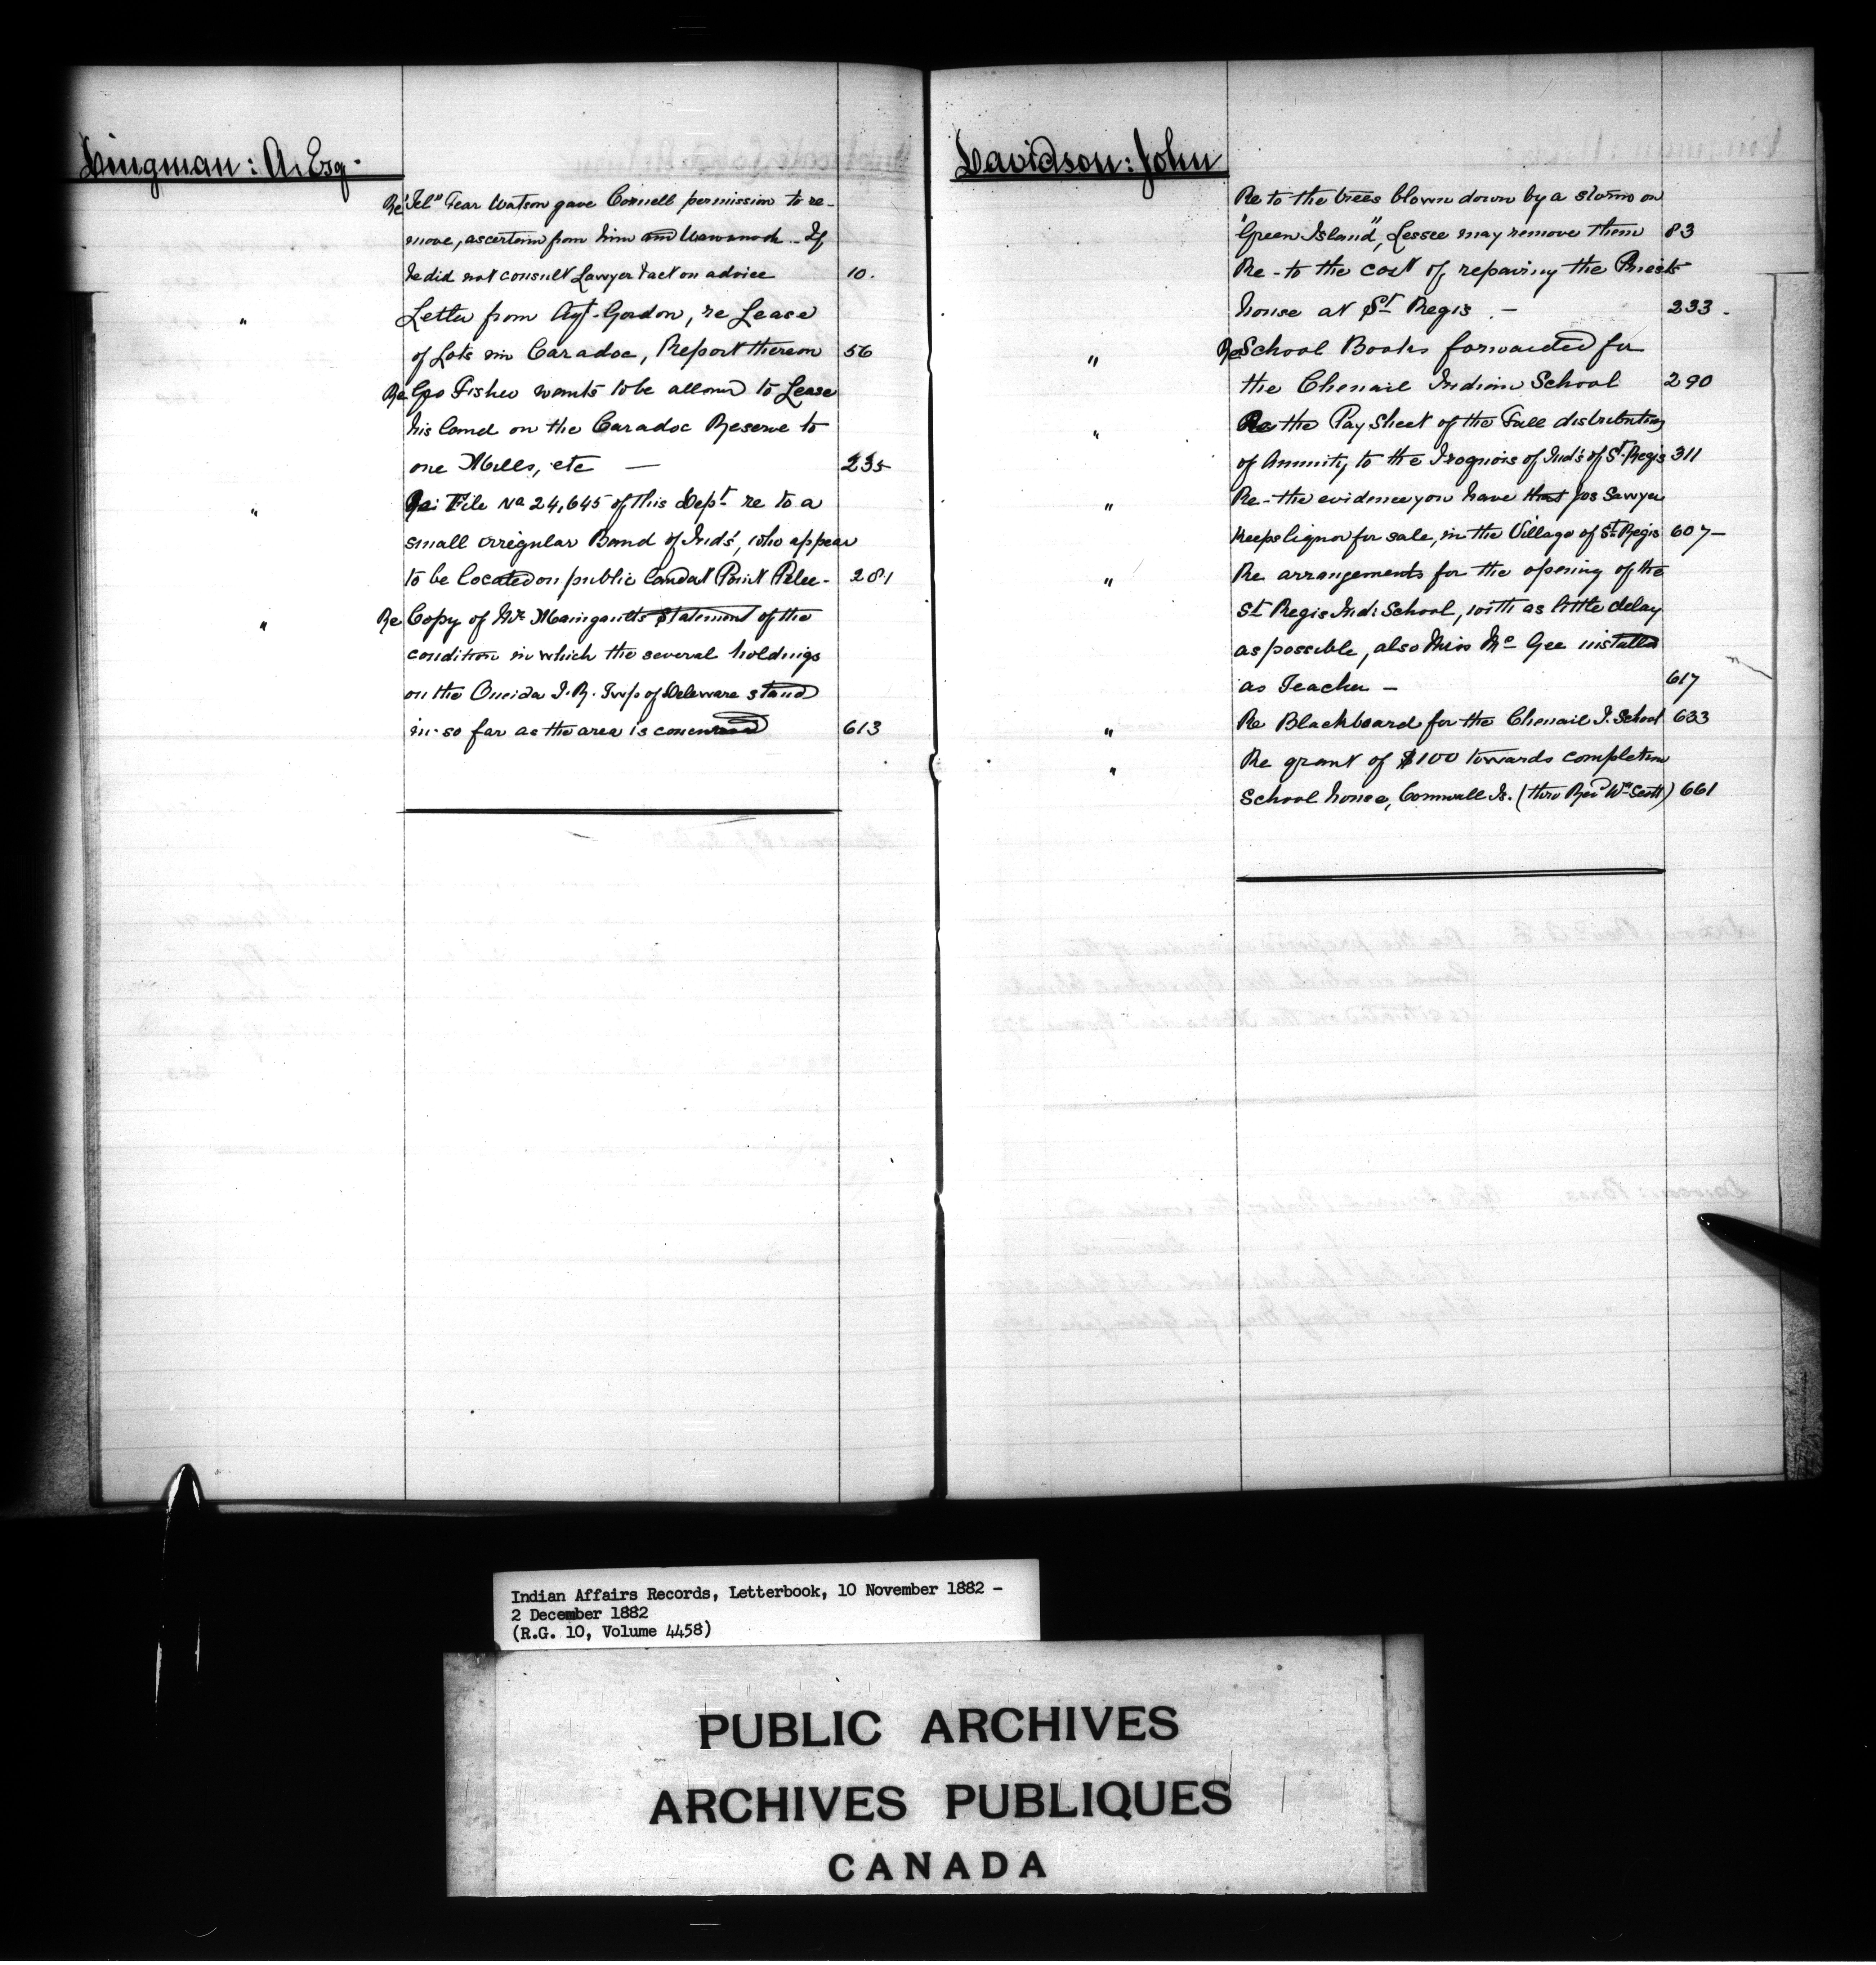 Dingman: A. Esq.
Re "Tel" Fear Watson gave Cornell permission to re-
move, ascertain from him and Wawanosh. If
he did not consult Lawyer & act on advice 10.
" Letter from Agt. Gordon, re Lease
of Lots in Caradoc, Report thereon 56
Re Geo Fisher wants to be allowed to Lease
his land on the Caradoc Reserve to
one Mills, etc — 235
" Re: File No 24,645 of this Dept re to a
small irregular Band of Ind's, who appear
to be located on public land at Point Pelee - 281
" Re Copy of Mr. Maingault's Statement of the
condition in which the several holdings
on the Oneida I.R. Twp of Deleware stand
in so far as the area is concerned 613
Davidson: John
Re to the trees blown down by a storm on
"Green Island", Lessee may remove them 83
Re - to the cost of repairing the Priests
house at St Regis. — 233.
" Re School Books forwarded for
the Chenail Indian School 290
" Re the Pay Sheet of the Fall distribution
of Annuity to the Iroquois of Ind's of St Regis 311
" Re - the evidence you have that Jos Sawyer
keeps liquor for sale, in the Village of St Regis 607 —
" Re arrangements for the opening of the
St Regis Ind: School, with as little delay
as possible, also Miss Mc Gee installed
as Teacher — 617
" Re Blackboard for the Chenail I. School 633
" Re grant of $100 towards completion
School house, Cornwall Is. (thro Revd Wm Scott) 661
Indian Affairs Records, Letterbook, 10 November 1882 –
2 December 1882
(R.G. 10, Volume 4458)
PUBLIC ARCHIVES
ARCHIVES PUBLIQUES
CANADA